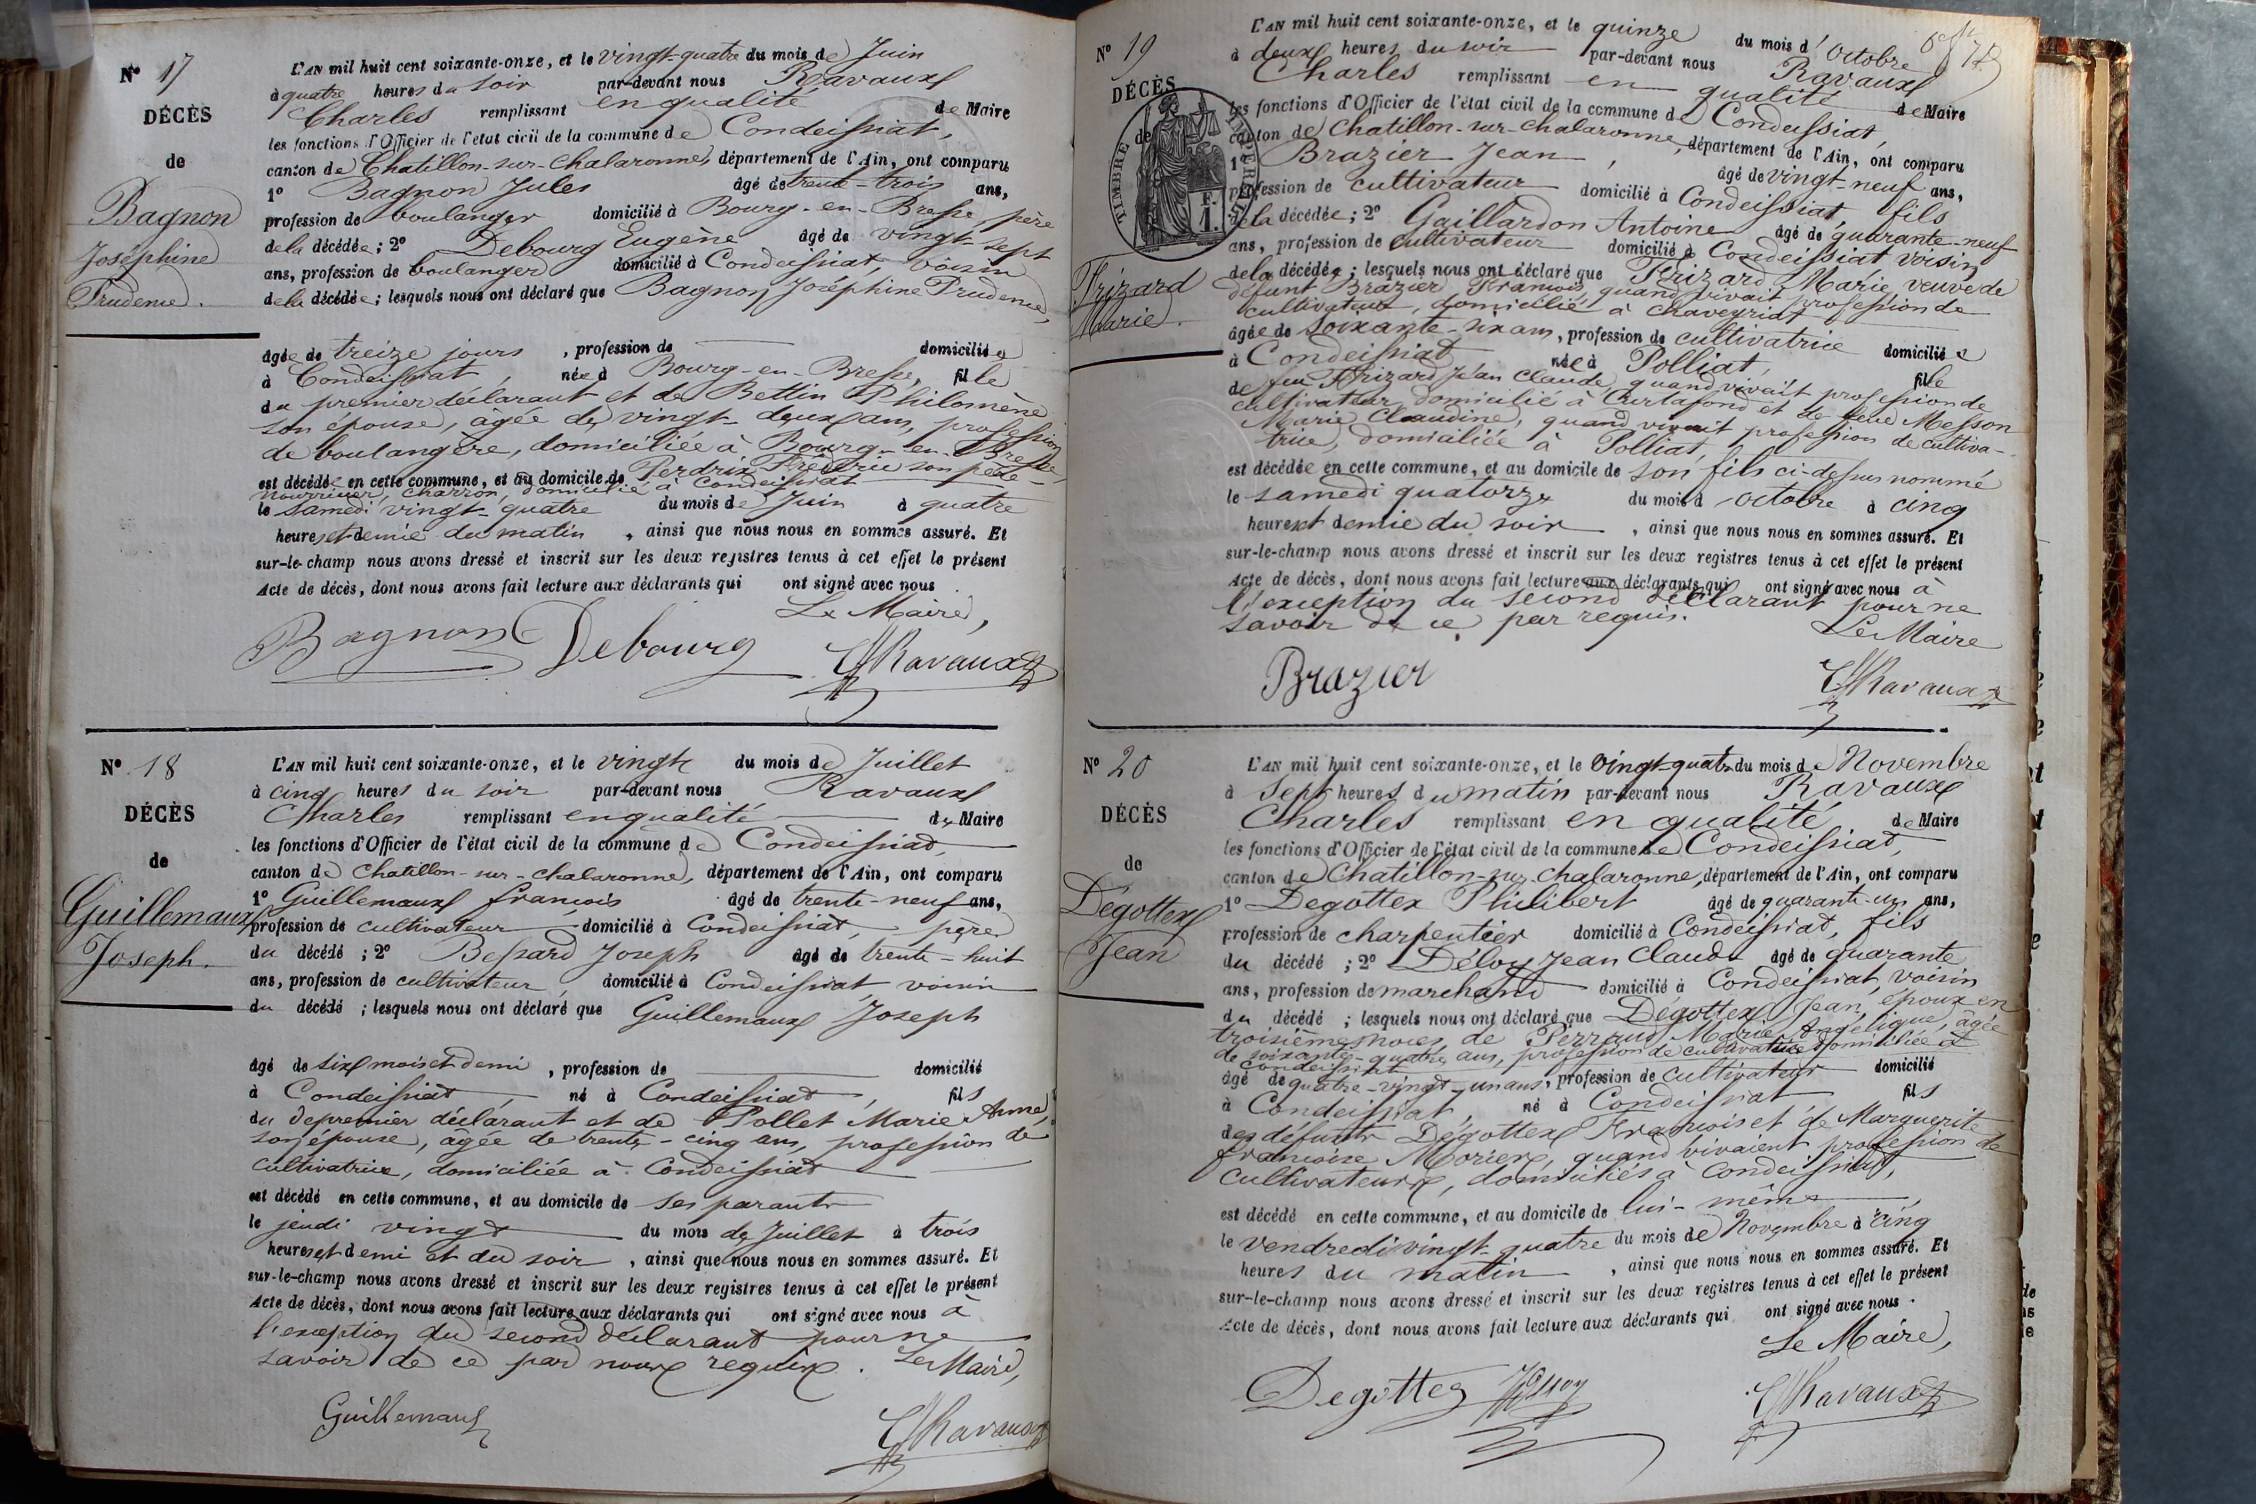 N° 17
DÉCÈS
de
Bagnon
Joséphine
Prudence.
L'AN mil huit cent soixante-onze, et le vingt-quatre du mois de Juin
à quatre heures du soir par-devant nous Ravaux
Charles remplissant en qualité de Maire
les fonctions d'Officier de l'état civil de la commune de Condeissiat,
canton de Chatillon-sur-Chalaronne, département de l'Ain, ont comparu
1° Bagnon Jules âgé de trente-trois ans,
profession de boulanger domicilié à Bourg-en-Bresse, père
de la décédée ; 2° Debourg Eugène âgé de vingt-sept
ans, profession de boulanger domicilié à Condeissiat, voisin
de la décédée ; lesquels nous ont déclaré que Bagnon Joséphine Prudence,
âgée de treize jours , profession de domiciliée
à Condeissiat, née à Bourg-en-Bresse, fille
du premier déclarant et de Bettin Philomène
son épouse, âgée de vingt-deux ans, profession
de boulangère, domiciliée à Bourg-en-Bresse,
est décédée en cette commune, et au domicile de Perdrix Frédéric son père-
nourricier, charron, domicilié à Condeissiat
le samedi vingt-quatre du mois de Juin à quatre
heures et demie du matin , ainsi que nous nous en sommes assuré. Et
sur-le-champ nous avons dressé et inscrit sur les deux registres tenus à cet effet le présent
Acte de décès, dont nous avons fait lecture aux déclarants qui ont signé avec nous
Le Maire,
Bagnon Debourg Ch Ravaux
N° 18
DÉCÈS
de
Guillemaux
Joseph.
L'AN mil huit cent soixante-onze, et le vingt du mois de Juillet
à cinq heures du soir par-devant nous Ravaux
Charles remplissant en qualité de Maire
les fonctions d'Officier de l'état civil de la commune de Condeissiat,
canton de Chatillon-sur-Chalaronne, département de l'Ain, ont comparu
1° Guillemaux françois âgé de trente-neuf ans,
profession de cultivateur domicilié à Condeissiat, père
du décédé ; 2° Bessard Joseph âgé de trente-huit
ans, profession de cultivateur, domicilié à Condeissiat, voisin
du décédé ; lesquels nous ont déclaré que Guillemaux Joseph
âgé de six mois et demi , profession de domicilié
à Condeissiat, né à Condeissiat, fils
du de premier déclarant et de Pollet Marie Anne,
son épouse, âgée de trente-cinq ans, profession de
cultivatrice, domiciliée à Condeissiat
est décédé en cette commune, et au domicile de ses parants
le jeudi vingt du mois de Juillet à trois
heures et demi et du soir , ainsi que nous nous en sommes assuré. Et
sur-le-champ nous avons dressé et inscrit sur les deux registres tenus à cet effet le présent
Acte de décès, dont nous avons fait lecture aux déclarants qui ont signé avec nous à
l'exception du second déclarant pour ne
savoir de ce par nous requis. Le Maire,
Guillemaux Ch Ravaux
N° 19
DÉCÈS
de
TIMBRE
1 F.
Frizard
Marie.
L'AN mil huit cent soixante-onze, et le quinze du mois d'Octobre
à deux heures du soir par-devant nous Ravaux
Charles remplissant en qualité de Maire
les fonctions d'Officier de l'état civil de la commune de Condeissiat,
canton de Chatillon-sur-Chalaronne, département de l'Ain, ont comparu
1° Brazier Jean, âgé de vingt-neuf ans,
profession de cultivateur domicilié à Condeissiat, fils
de la décédée ; 2° Gaillardon Antoine âgé de quarante-neuf
ans, profession de cultivateur domicilié à Condeissiat voisin
de la décédée ; lesquels nous ont déclaré que Frizard Marie, veuve de
défunt Brazier François, quand vivait profession de
cultivateur, domicilié à Chaveyriat
âgée de soixante-six ans, profession de cultivatrice domiciliée
à Condeissiat née à Polliat, fille
de feu Frizard Jean Claude, quand vivait profession de
cultivateur domicilié à Curtafond et de feue Messon
Marie Claudine, quand vivait profession de cultiva-
trice, domiciliée à Polliat,
est décédée en cette commune, et au domicile de son fils ci-dessus nommé
le samedi quatorze du mois d'octobre à cinq
heures et demie du soir , ainsi que nous nous en sommes assuré. Et
sur-le-champ nous avons dressé et inscrit sur les deux registres tenus à cet effet le présent
Acte de décès, dont nous avons fait lecture aux déclarants qui ont signé avec nous à
l'exception du second déclarant pour ne
savoir de ce par requis.
Le Maire
Brazier Ch Ravaux
N° 20
DÉCÈS
de
Dégottex
Jean
L'AN mil huit cent soixante-onze, et le vingt-quatre du mois de Novembre
à sept heures du matin par-devant nous Ravaux
Charles remplissant en qualité de Maire
les fonctions d'Officier de l'état civil de la commune de Condeissiat,
canton de Chatillon-sur-Chalaronne, département de l'Ain, ont comparu
1° Degottex Philibert âgé de quarante-un ans,
profession de charpentier domicilié à Condeissiat, fils
du décédé ; 2° Jean Claude âgé de quarante
ans, profession de marchand domicilié à Condeissiat, voisin
du décédé ; lesquels nous ont déclaré que Dégottex Jean, époux en
troisièmes noces de Perraud Marie Angélique, âgée
de soixante-quatre ans, profession de cultivatrice domiciliée à
Condeissiat
âgé de quatre-vingt-un ans, profession de cultivateur domicilié
à Condeissiat, né à Condeissiat fils
des défunts Dégottex François et de Marguerite
françoise Morier, quand vivaient profession de
cultivateurs, domiciliés à Condeissiat,
est décédé en cette commune, et au domicile de lui-même,
le vendredi vingt-quatre du mois de Novembre à cinq
heures du matin , ainsi que nous nous en sommes assuré. Et
sur-le-champ nous avons dressé et inscrit sur les deux registres tenus à cet effet le présent
Acte de décès, dont nous avons fait lecture aux déclarants qui ont signé avec nous.
Le Maire,
Degottex Ch Ravaux